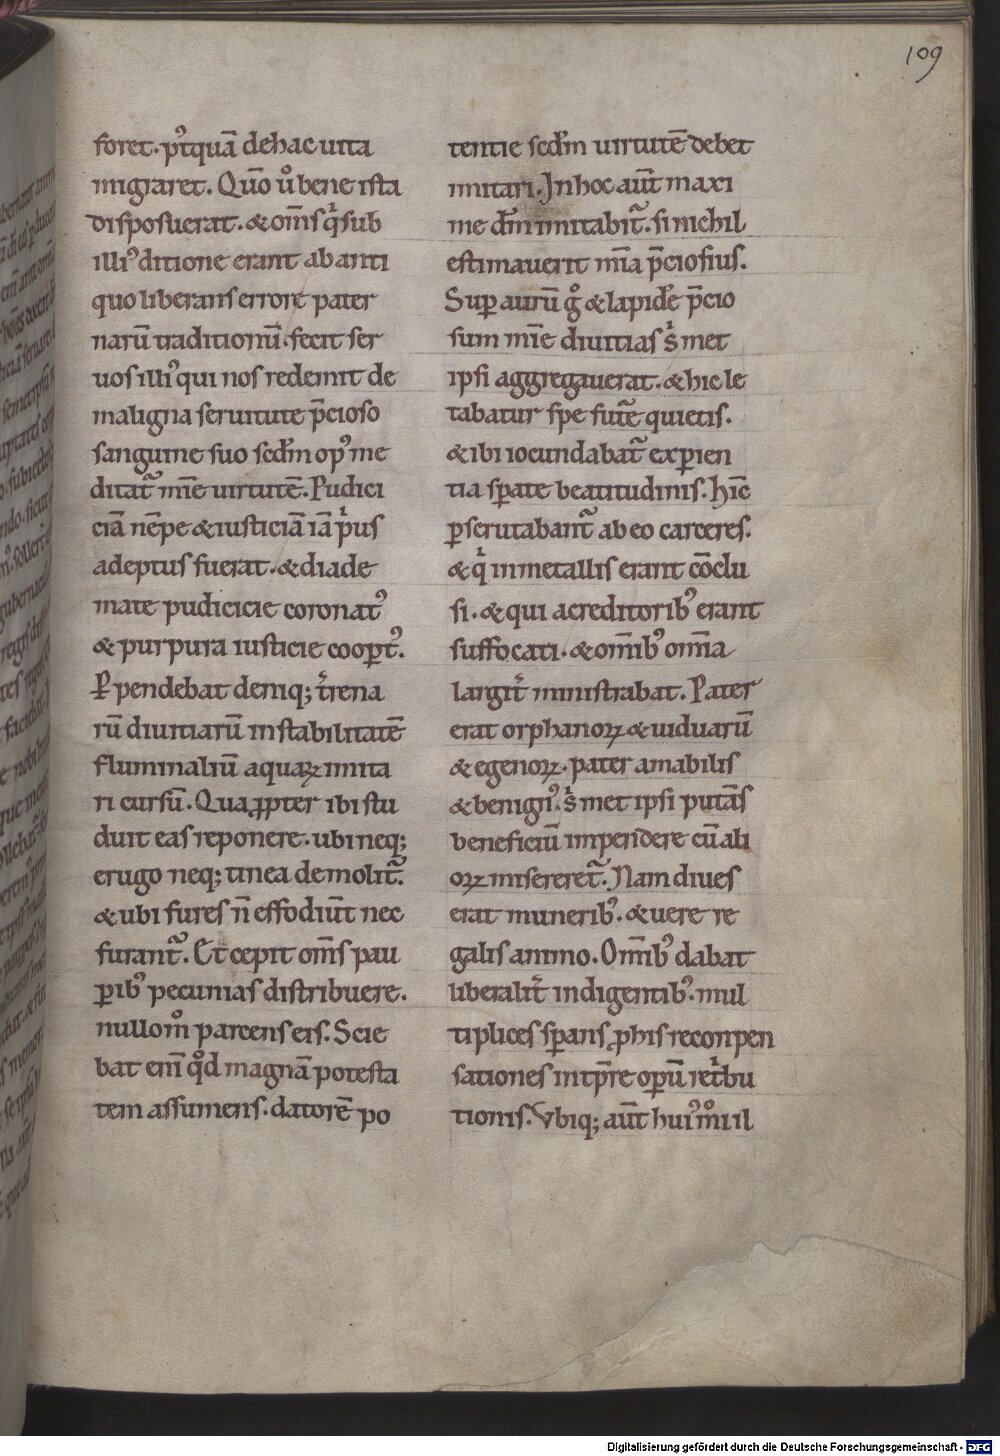 109
foret. pꝰtquā de hac uita
migraret. Quō ů bene ista
disposuerat. & om̄s qͥ sub
illiꝰ ditione erant ab anti
quo liberans errore pater
narū traditionū. fecit ser
uos illiꝰ qui nos redemit de
maligna seruitute p̄cioso
sanguine suo scd̄m opꝰ me
ditat᷑ mīe uirtutē. Pudici
ciā nēpe & iusticiā iā pͥus
adeptus fuerat. & diade
mate pudicicie coronatꝰ
& purpura iusticie coopertꝰ.
Ꝑpendebat deniq; t̄rena
rū diuitiarū instabilitatē
fluminaliū aquaꝝ imita
ri cursū. Quaꝓpter ibi stu
duit eas reponere. ubi neq;
erugo neq; tinea demolit᷑.
& ubi fures n̄ effodiūt nec
furant᷑. Et cepit om̄s pau
ꝑibꝰ pecunias distribuere.
nullomͦ parcens eis. Scie
bat enī qͦd magnā potesta
tem assumens. datorē po
tentie scd̄m uirtutē debet
imitari. In hoc aūt maxi
me dm̄ imitabit᷑. si nichil
estimauerit mīa p̄ciosius.
Suꝑ aurū gͦ & lapidē p̄cio
sum mīe diuitias s᷑ met
ipsi aggregauerat. & hic le
tabatur spe futēe quietis.
& ibi iocundabat᷑ exꝑien
tia sꝑate beatitudinis. Hīc
ꝑscrutabant᷑ ab eo carceres.
& qͥ in metallis erant cōclu
si. & qui a creditoribꝰ erant
suffocati. & om̄ibꝰ om̄ia
largit᷑ ministrabat. Pater
erat orphanoꝝ & uiduarū
& egenoꝝ. pater amabilis
& benignꝰ. s᷑ met ipsi putās
beneficiū impendere cū ali
oꝝ misereret᷑. Nam diues
erat muneribꝰ. & uere re
galis animo. Om̄ibꝰ dabat
liberalit᷑ indigentibꝰ. mul
tiplices sꝑans ꝓ his reconpen
sationes in tp̄re oꝑū ret᷑bu
tionis. Vbiq; aūt huiꝰmͦi il
Digitalisierung gefördert durch die Deutsche Forschungsgemeinschaft - DFG